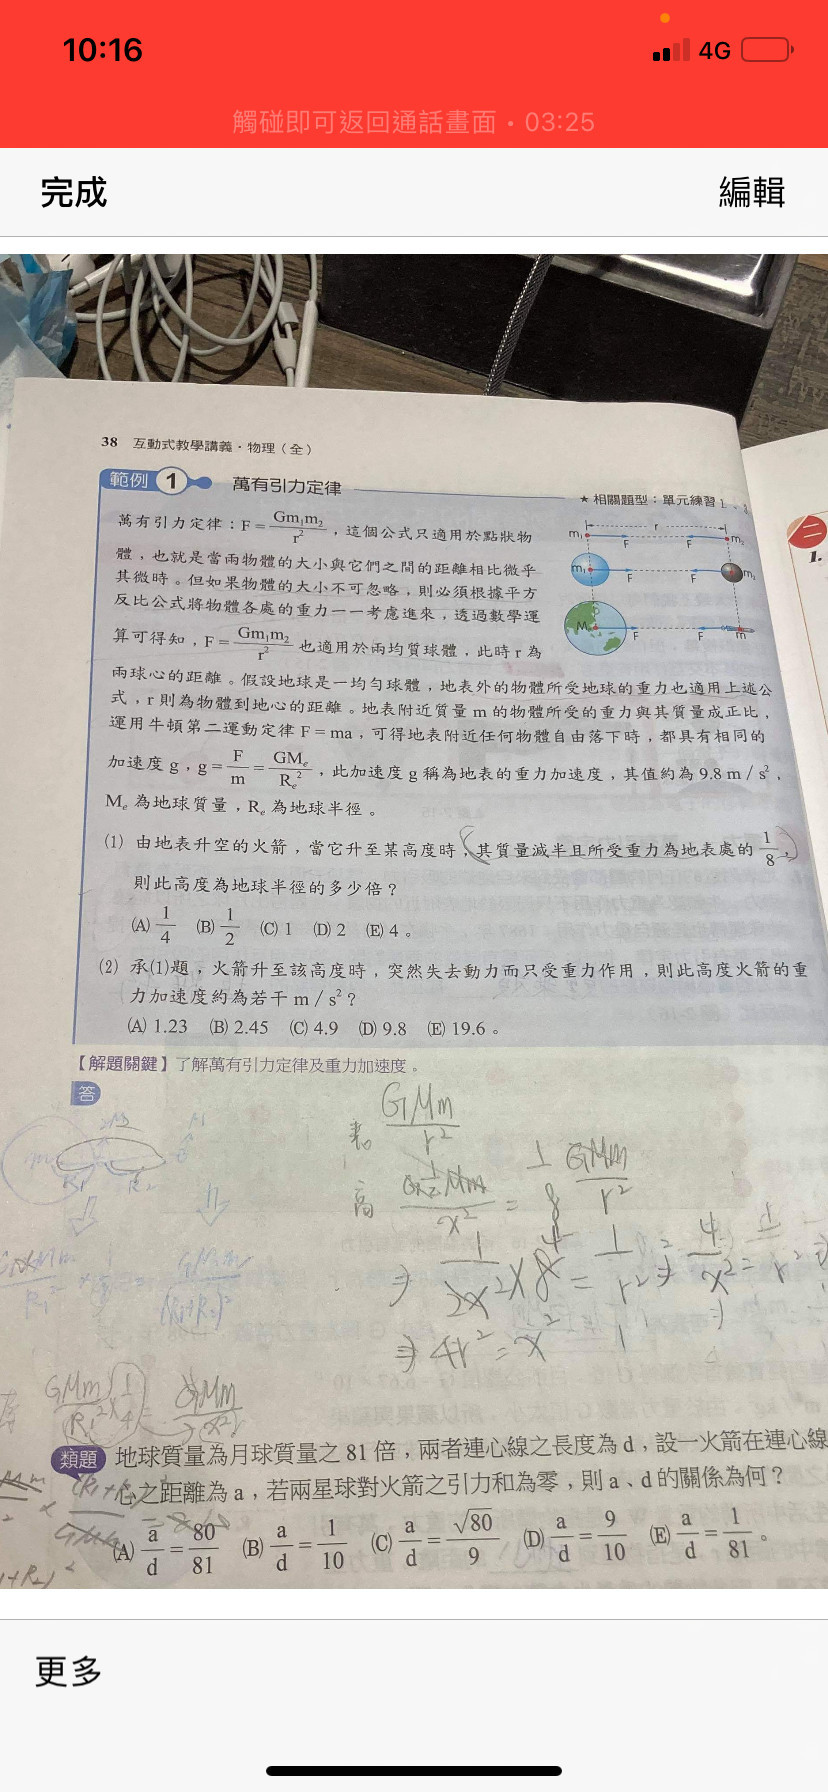 10:16
4G
觸碰即可返回通話畫面・03:25
完成 編輯
38 互動式教學講義・物理(全)
範例 1 萬有引力定律
★相關題型:單元練習 1、
萬有引力定律:F=Gm₁m₂/r²,這個公式只適用於點狀物
體,也就是當兩物體的大小與它們之間的距離相比微乎
其微時。但如果物體的大小不可忽略,則必須根據平方
反比公式將物體各處的重力一一考慮進來,透過數學運
算可得知,F=Gm₁m₂/r² 也適用於兩均質球體,此時 r 為
m₁ r m₂
F F
m₁ F F m₂
M F F m
兩球心的距離。假設地球是一均勻球體,地表外的物體所受地球的重力也適用上述公
式,r 則為物體到地心的距離。地表附近質量 m 的物體所受的重力與其質量成正比,
運用牛頓第二運動定律 F=ma,可得地表附近任何物體自由落下時,都具有相同的
加速度 g,g=F/m=GMₑ/Rₑ²,此加速度 g 稱為地表的重力加速度,其值約為 9.8 m/s²,
Mₑ 為地球質量,Rₑ 為地球半徑。
(1) 由地表升空的火箭,當它升至某高度時,其質量減半且所受重力為地表處的 1/8,
則此高度為地球半徑的多少倍?
(A) 1/4 (B) 1/2 (C) 1 (D) 2 (E) 4。
(2) 承(1)題,火箭升至該高度時,突然失去動力而只受重力作用,則此高度火箭的重
力加速度約為若干 m/s²?
(A) 1.23 (B) 2.45 (C) 4.9 (D) 9.8 (E) 19.6。
【解題關鍵】了解萬有引力定律及重力加速度。
答
表 GMm/r²
高
1/8 GMm/r²
⇒ 4r²=x²
類題 地球質量為月球質量之 81 倍,兩者連心線之長度為 d,設一火箭在連心線
心之距離為 a,若兩星球對火箭之引力和為零,則 a、d 的關係為何?
(A) a/d=80/81 (B) a/d=1/10 (C) a/d=√80/9 (D) a/d=9/10 (E) a/d=1/81。
更多